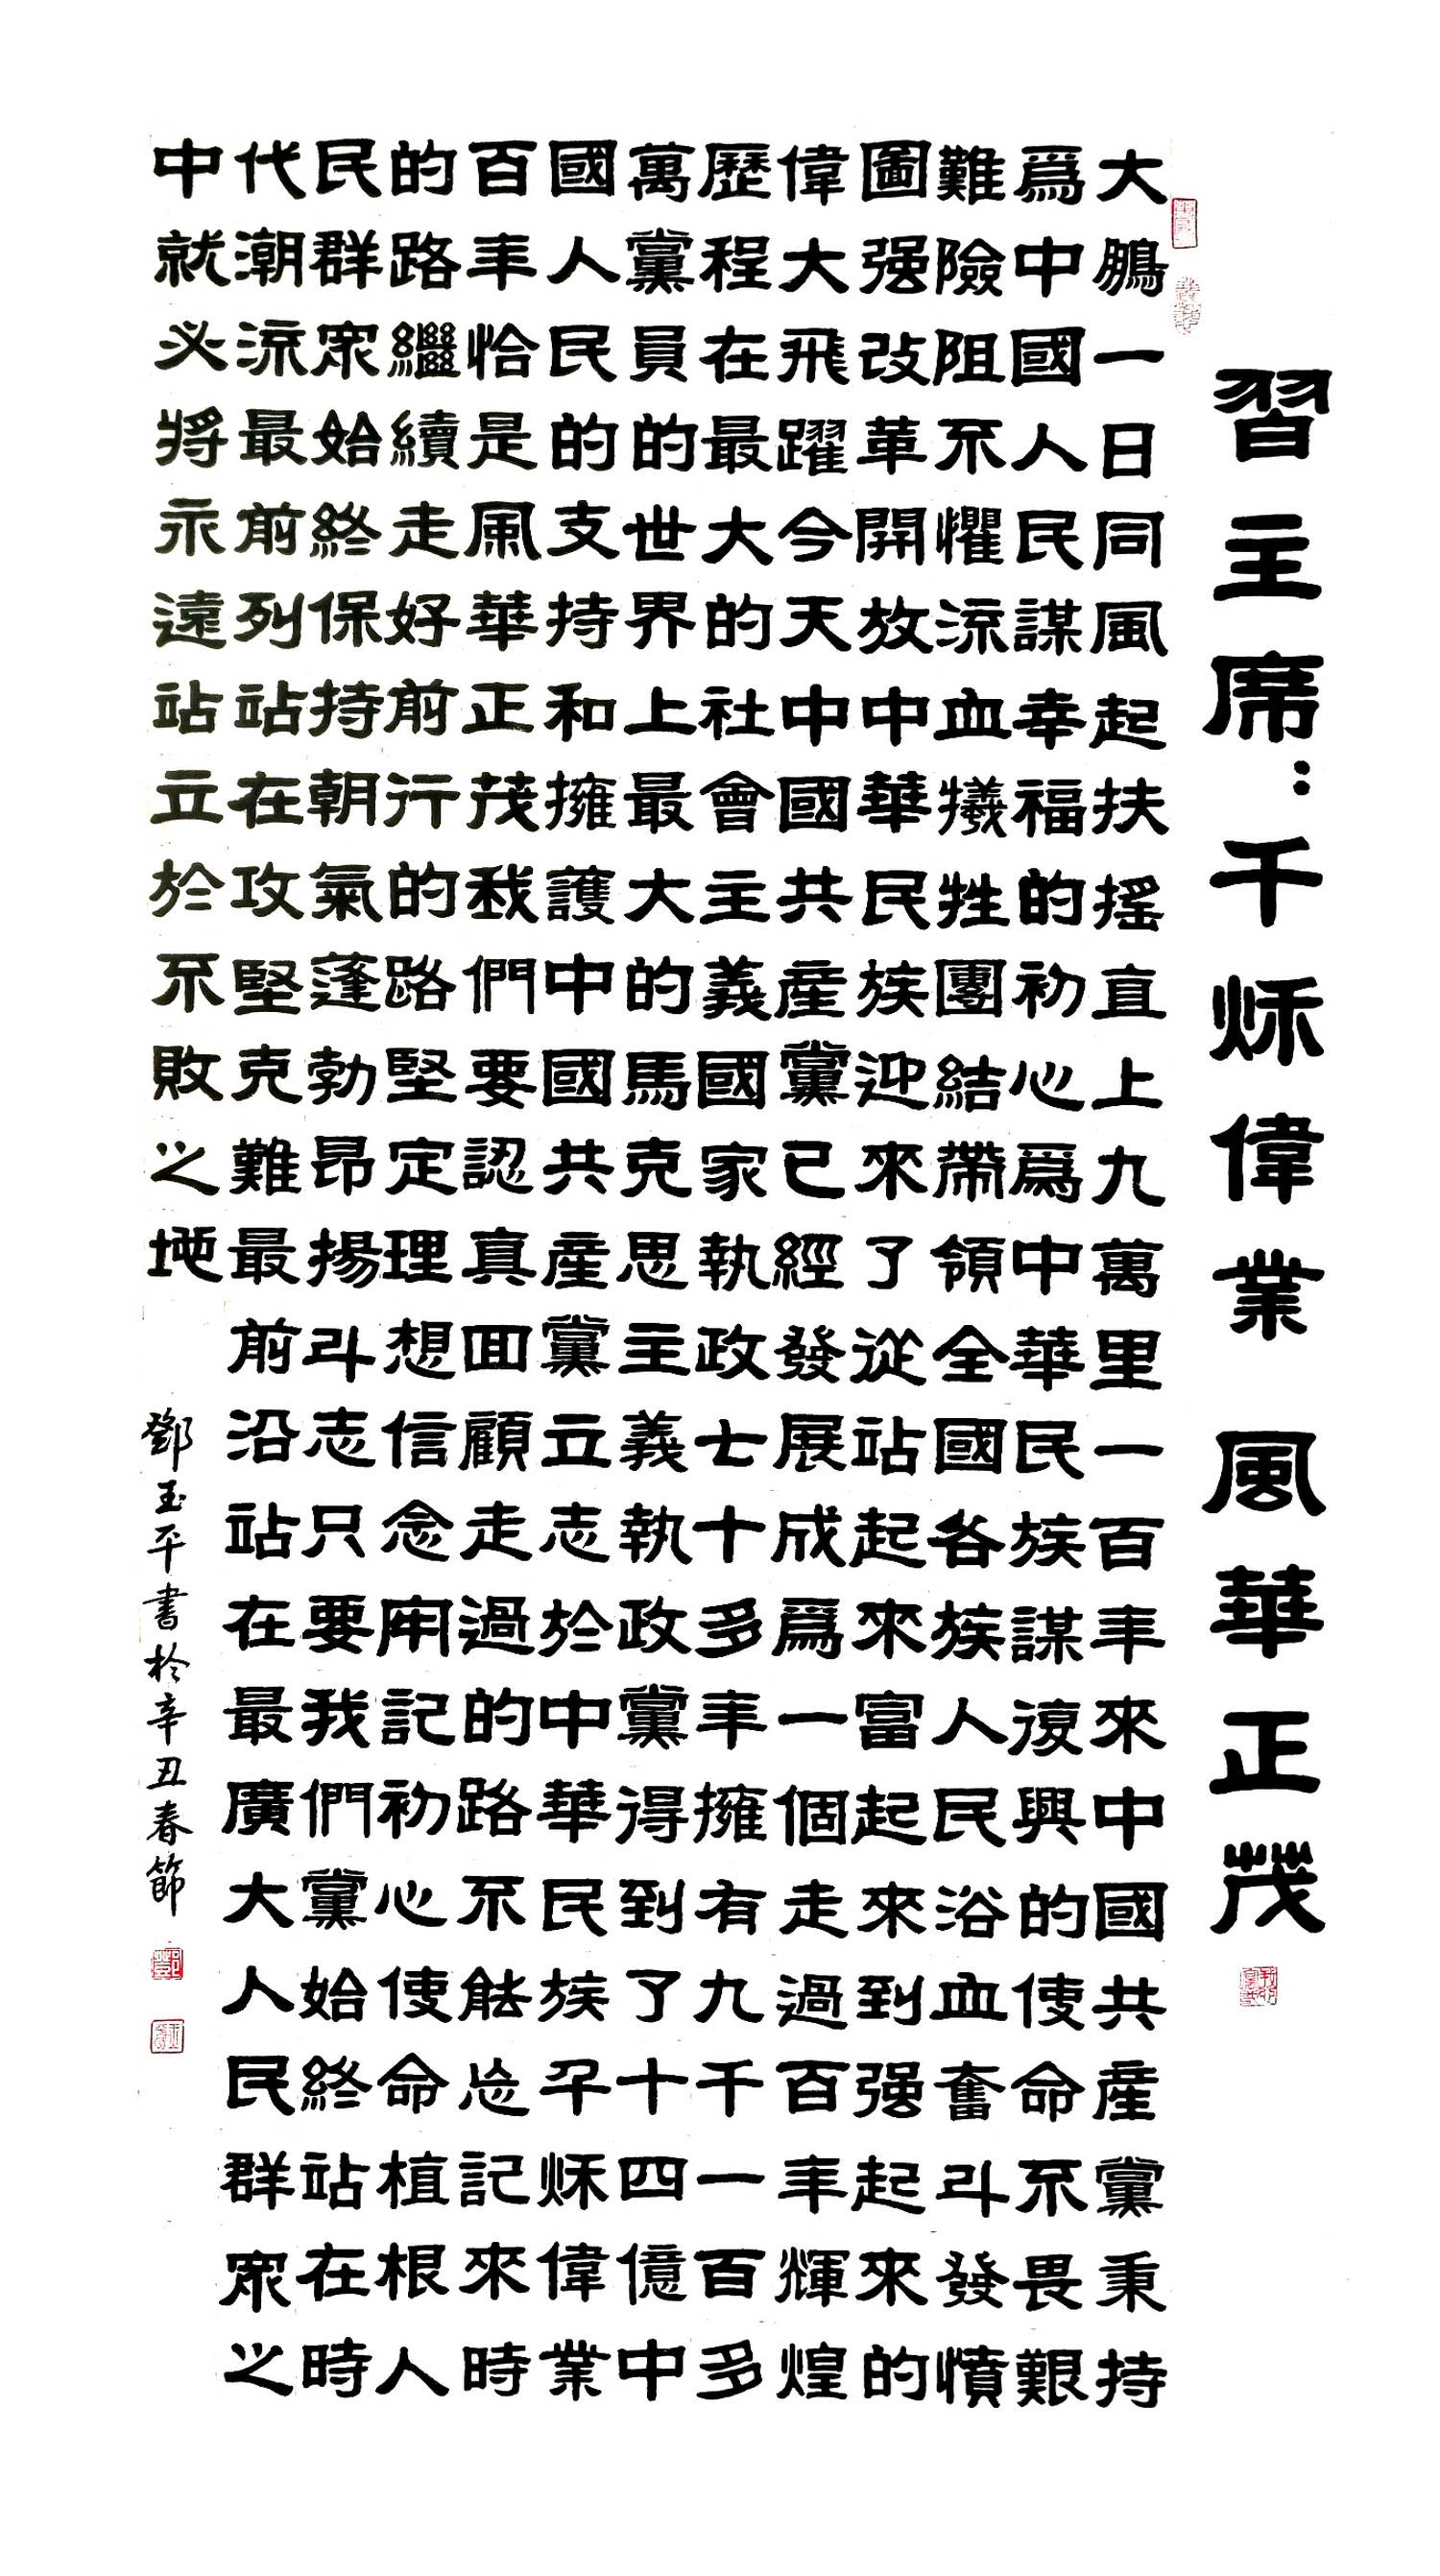 習主席：千秌偉業 風華正茂
大鵬一日同風起扶搖直上九萬里一百年來中國共産黨秉持
爲中國人民謀幸福的初心爲中華民族謀復興的使命不畏艱
難險阻不懼流血犧牲團結帶領全國各族人民浴血奮斗發憤
圖强改革開放中華民族迎來了從站起來富起來到强起來的
偉大飛躍今天中國共産黨已經發展成爲一個走過百年輝煌
歷程在最大的社會主義國家執政七十多年擁有九千一百多
萬黨員的世界上最大的馬克思主義執政黨得到了十四億中
國人民的支持和擁護中國共産黨立志於中華民族千秌偉業
百年恰是風華正茂我們要認真回顧走過的路不能忘記來時
的路繼續走好前行的路堅定理想信念牢記初心使命植根人
民群眾始終保持朝氣蓬勃昂揚斗志只要我們黨始終站在時
代潮流最前列站在攻堅克難最前沿站在最廣大人民群眾之
中就必將永遠站立於不敗之地
鄧玉平書於辛丑春節